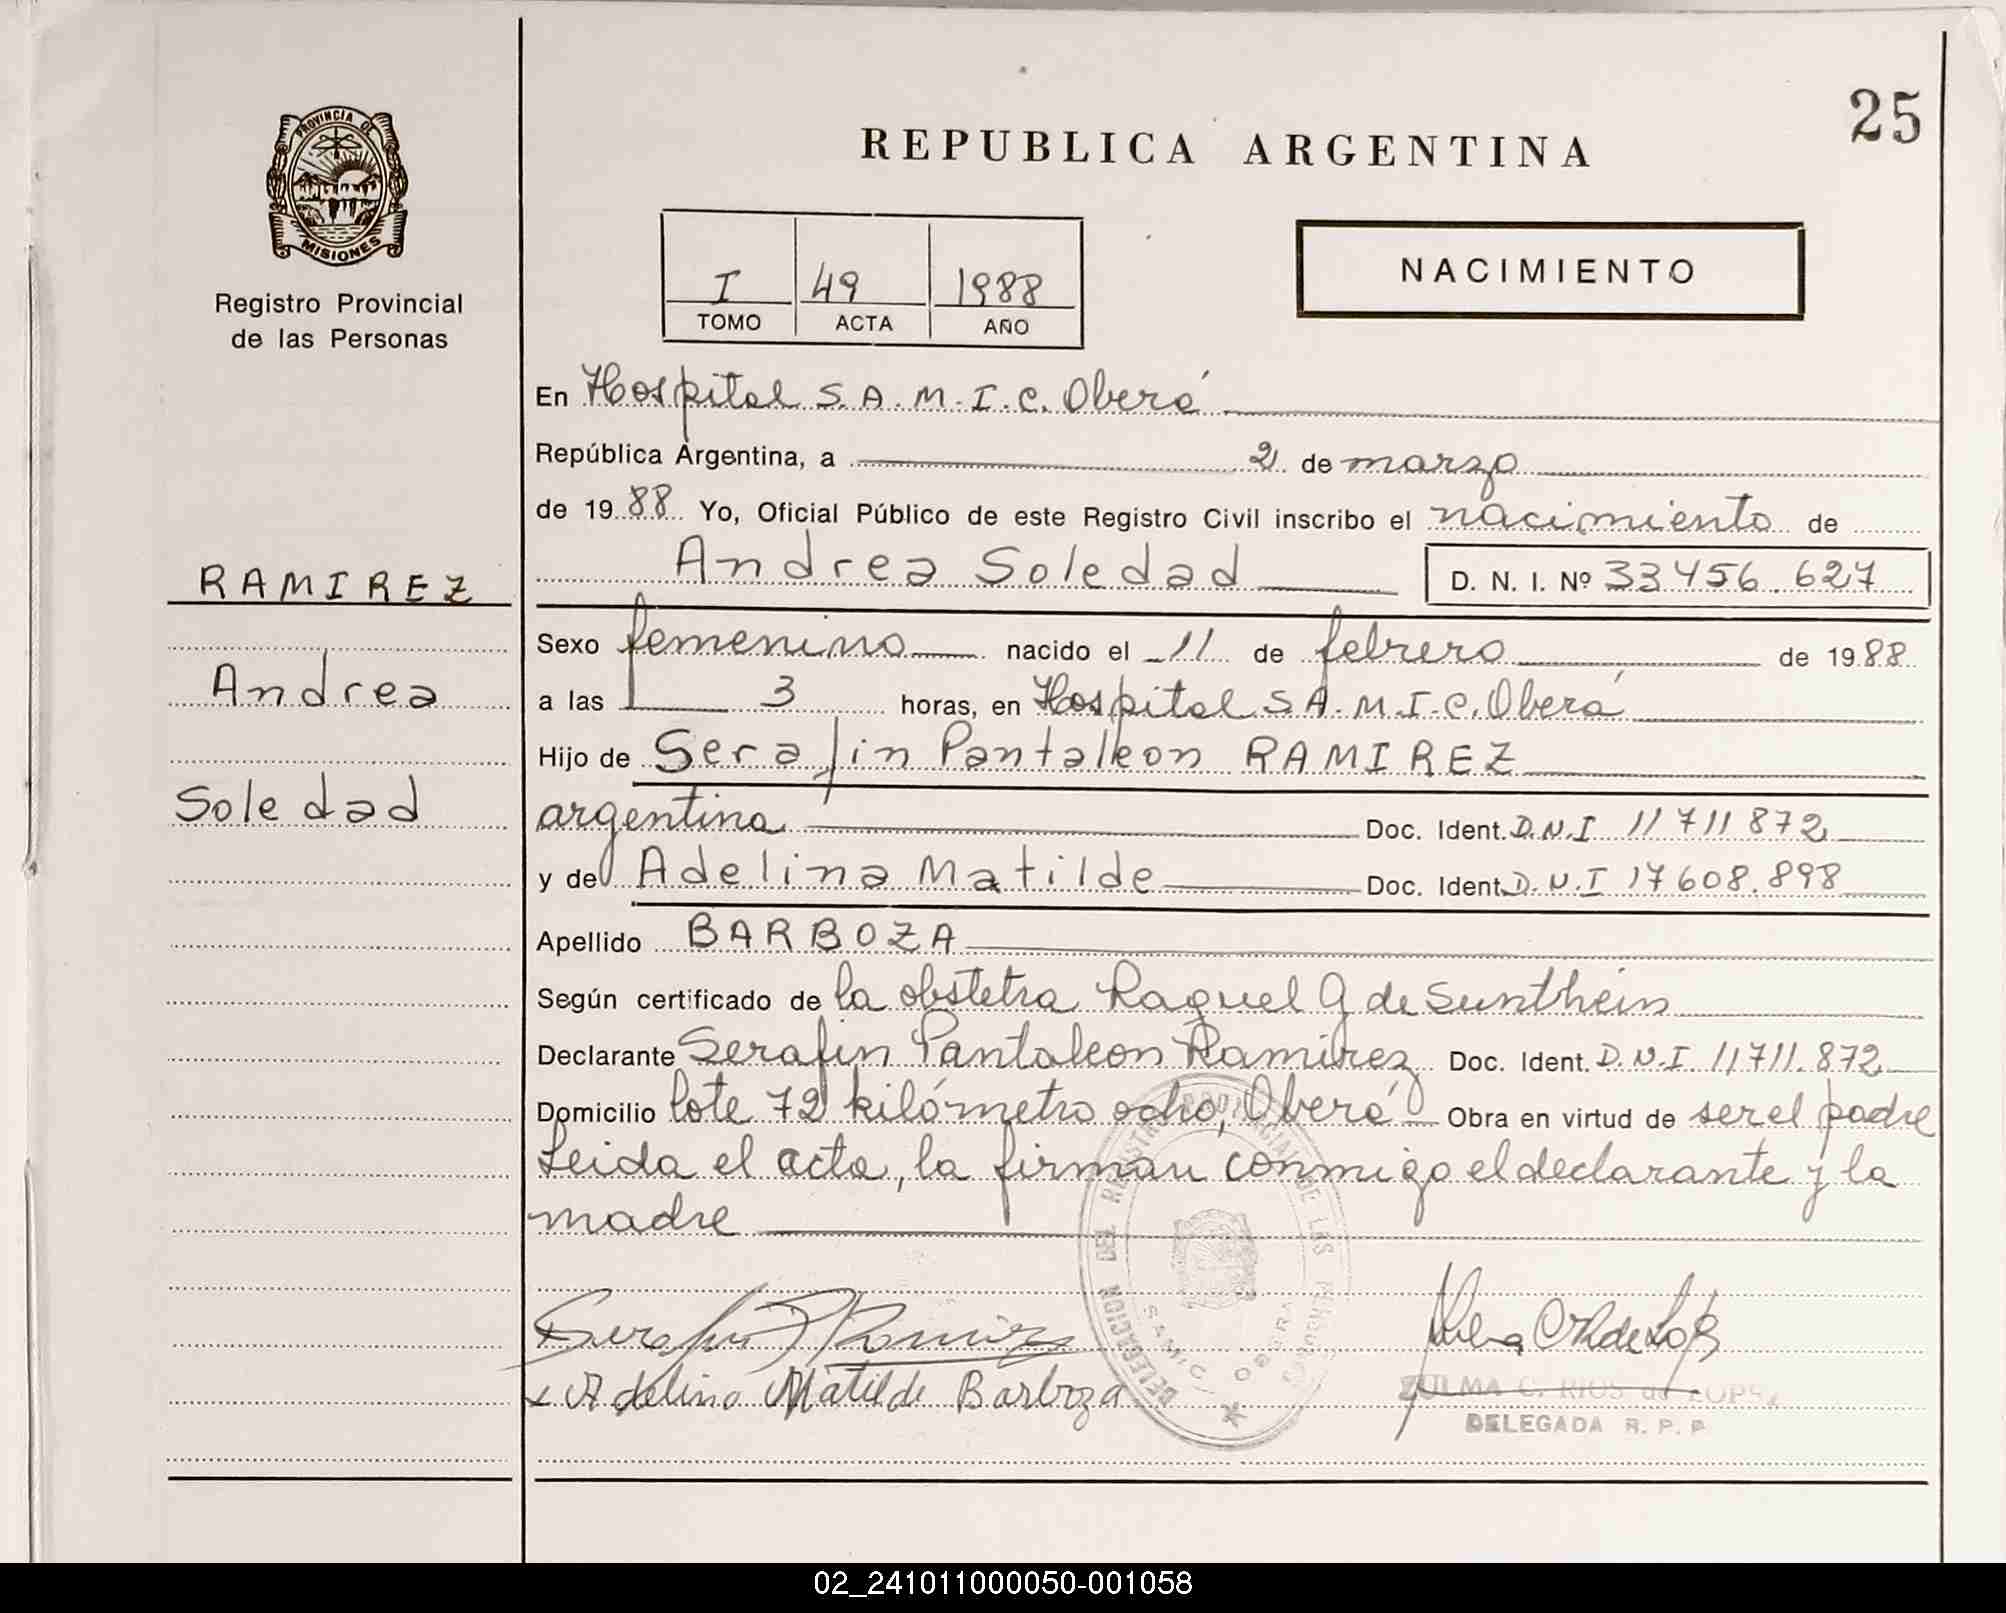 25
PROVINCIA DE
MISIONES
Registro Provincial
de las Personas
REPUBLICA ARGENTINA
I 49 1988
TOMO ACTA AÑO
NACIMIENTO
En Hospital S.A.M.I.C. Oberá
República Argentina, a 2 de marzo
de 1988 Yo, Oficial Público de este Registro Civil inscribo el nacimiento de
Andrea Soledad D. N. I. Nº 33456.627
RAMIREZ
Andrea
Soledad
Sexo femenino nacido el 11 de febrero de 1988
a las 3 horas, en Hospital S.A.M.I.C. Oberá
Hijo de Serafin Pantaleon RAMIREZ
argentina Doc. Ident. D.N.I 11711872
y de Adelina Matilde Doc. Ident. D.N.I 17608.898
Apellido BARBOZA
Según certificado de la obstetra Raquel G de Sunthein
Declarante Serafin Pantaleon Ramirez Doc. Ident. D.N.I 11711.872
Domicilio lote 72 kilómetro ocho, Oberá Obra en virtud de ser el padre
Leida el acta, la firman conmigo el declarante y la
madre
DELEGACION DEL REGISTRO PROVINCIAL DE LAS PERSONAS
SAMIC OBERA
Serafin P Ramirez
x Adelina Matilde Barboza
ZULMA C. RIOS de LOPEZ
DELEGADA R. P. P
02_241011000050-001058